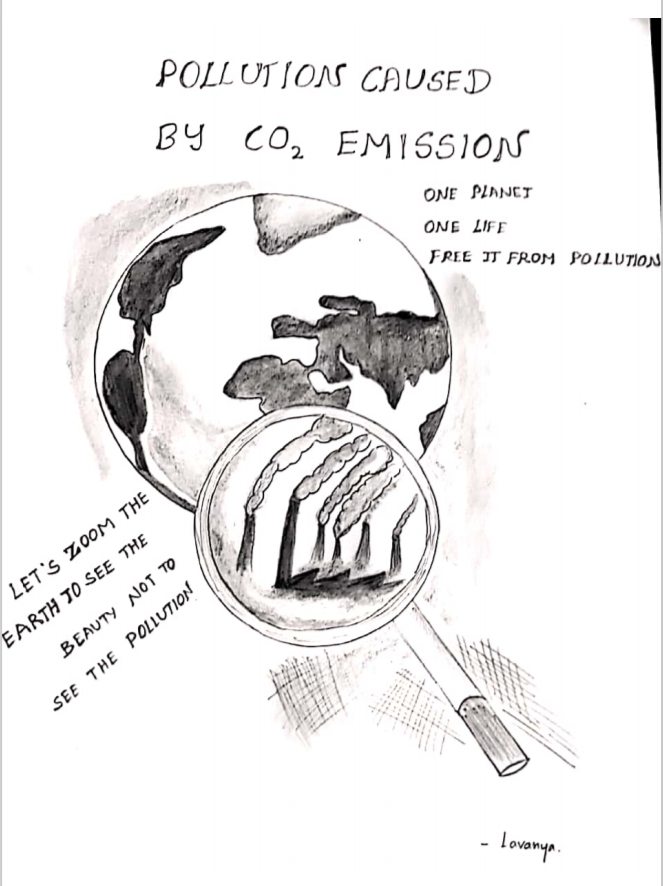 POLLUTION CAUSED
BY CO₂ EMISSION
ONE PLANET
ONE LIFE
FREE IT FROM POLLUTION
LET'S ZOOM THE
EARTH TO SEE THE
BEAUTY NOT TO
SEE THE POLLUTION
- Lavanya.